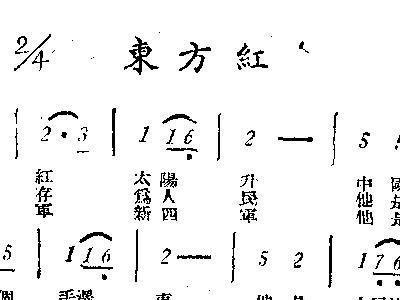 2/4 東方紅
2 · 3 | 1 1 6 | 2 — | 5 5
紅 太陽 升 中
存 為人 民 他是
軍 新四 軍 他是
5 | 1 1 6 | 2 — | 5 2 | 1 7 6
東 他